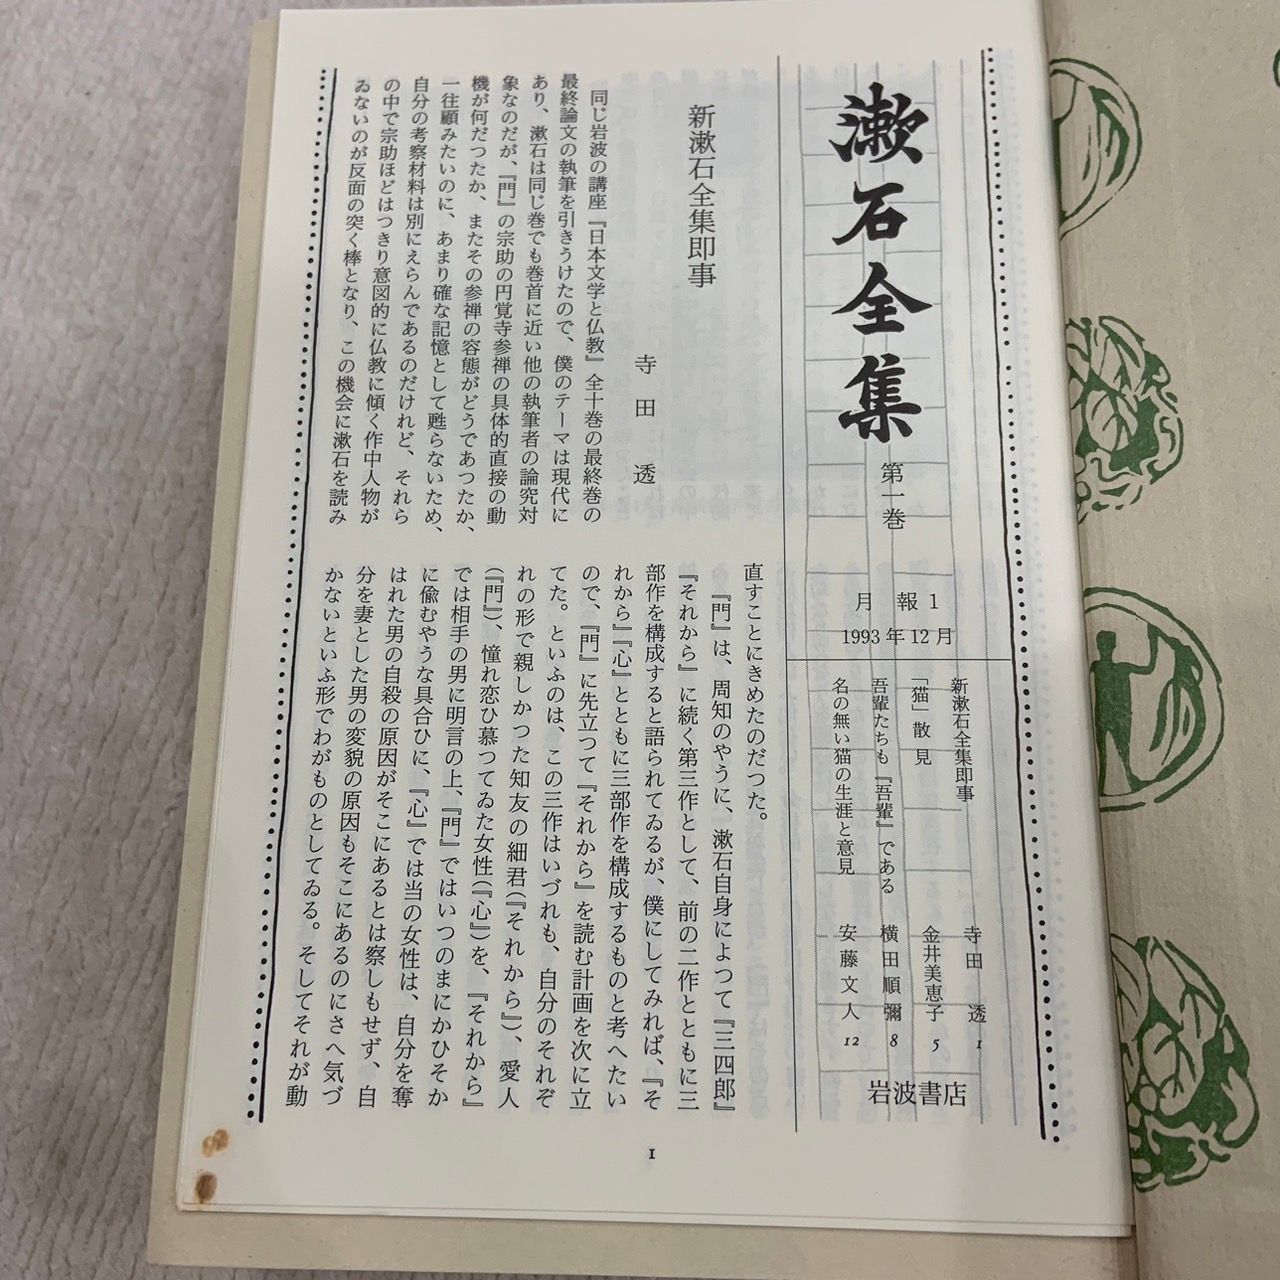 漱石全集
第一巻
月報1
1993年12月
新漱石全集即事 寺田 透 1
「猫」散見 金井美恵子 5
吾輩たちも『吾輩』である 横田順彌 8
名の無い猫の生涯と意見 安藤文人 12
岩波書店
新漱石全集即事
寺田 透
同じ岩波の講座『日本文学と仏教』全十巻の最終巻の
最終論文の執筆を引きうけたので、僕のテーマは現代に
あり、漱石は同じ巻でも巻首に近い他の執筆者の論究対
象なのだが、『門』の宗助の円覚寺参禅の具体的直接の動
機が何だつたか、またその参禅の容態がどうであつたか、
一往顧みたいのに、あまり確な記憶として甦らないため、
自分の考察材料は別にえらんであるのだけれど、それら
の中で宗助ほどはつきり意図的に仏教に傾く作中人物が
ゐないのが反面の突く棒となり、この機会に漱石を読み
直すことにきめたのだつた。
『門』は、周知のやうに、漱石自身によつて『三四郎』
『それから』に続く第三作として、前の二作とともに三
部作を構成すると語られてゐるが、僕にしてみれば、『そ
れから』『心』とともに三部作を構成するものと考へたい
ので、『門』に先立つて『それから』を読む計画を次に立
てた。といふのは、この三作はいづれも、自分のそれぞ
れの形で親しかつた知友の細君(『それから』)、愛人
(『門』)、憧れ恋ひ慕つてゐた女性(『心』)を、『それから』
では相手の男に明言の上、『門』ではいつのまにかひそか
に偸むやうな具合ひに、『心』では当の女性は、自分を奪
はれた男の自殺の原因がそこにあるとは察しもせず、自
分を妻とした男の変貌の原因もそこにあるのにさへ気づ
かないといふ形でわがものとしてゐる。そしてそれが動
1